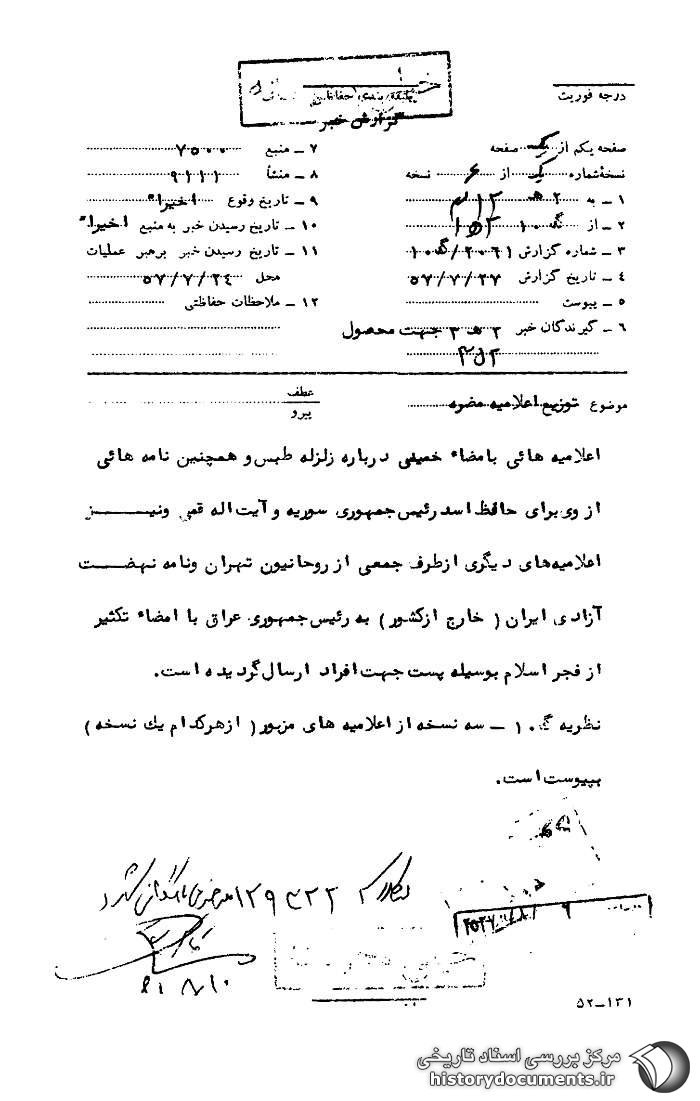 درجه فوریت
طبقه بندی حفاظتی
گزارش خبر
صفحه یکم از یک صفحه
نسخه شماره یک از ۶ نسخه
۱ ـ به ۲ هـ ۳۱۲
۲ ـ از گ ۱۰
۳ ـ شماره گزارش ۱۰گ/۲۰۶۱
۴ ـ تاریخ گزارش ۵۷/۷/۲۷
۵ ـ پیوست
۶ ـ گیرندگان خبر ۲ هـ ۳ جهت محصول
۷ ـ منبع ۷۵۰۰
۸ ـ منشأ ۹۱۱۱
۹ ـ تاریخ وقوع اخیرا"
۱۰ ـ تاریخ رسیدن خبر به منبع اخیرا"
۱۱ ـ تاریخ رسیدن خبر برهبر عملیات
محل ۵۷/۷/۲۴
۱۲ ـ ملاحظات حفاظتی
موضوع توزیع اعلامیه مضره
عطف
پیرو
اعلامیه هائی بامضاء خمینی درباره زلزله طبس و همچنین نامه هائی
از وی برای حافظ اسد رئیس جمهوری سوریه و آیت اله قمی ونیـــــز
اعلامیه‌های دیگری ازطرف جمعی از روحانیون تهران ونامه نهضـــت
آزادی ایران ( خارج ازکشور ) به رئیس جمهوری عراق با امضاء تکثیر
از فجر اسلام بوسیله پست جهت افراد ارسال گردیده است.
نظریه گ ۱۰ ـ سه نسخه از اعلامیه های مزبور ( ازهرکدام یک نسخه )
بپیوست است.
۱۲۹۴۲۲
خیلی محرمانه
۵۲ـ۱۳۱
مرکز بررسی اسناد تاریخی
historydocuments.ir